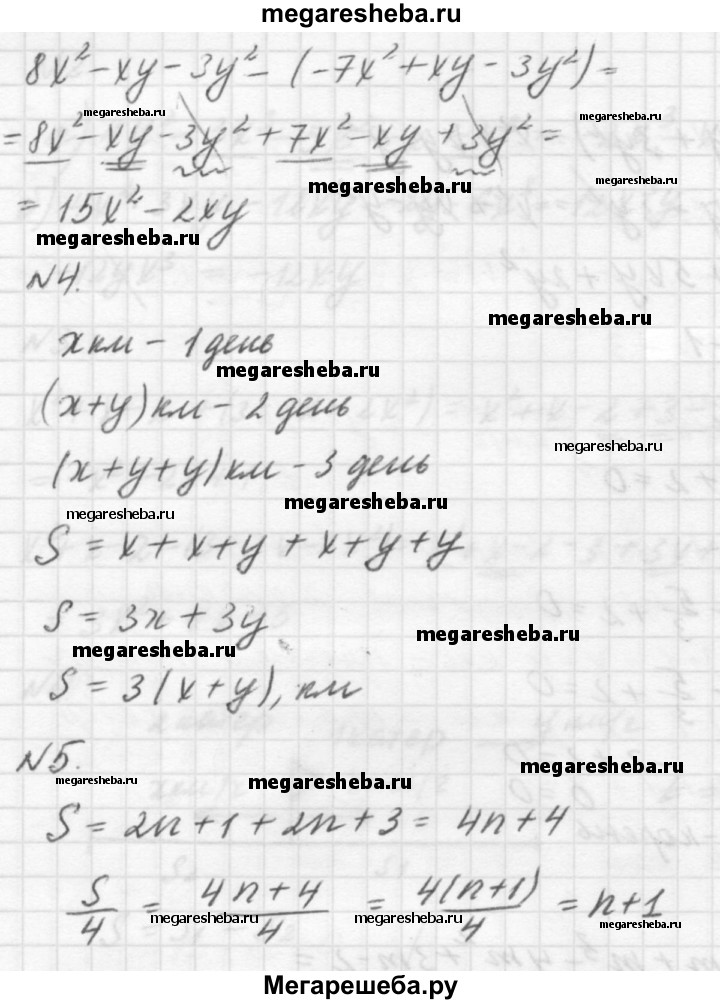 megaresheba.ru
8x² - xy - 3y² - (-7x² + xy - 3y²) =
megaresheba.ru
megaresheba.ru
= 8x² - xy - 3y² + 7x² - xy + 3y² =
megaresheba.ru
megaresheba.ru
= 15x² - 2xy
megaresheba.ru
N4.
megaresheba.ru
x км - 1 день
megaresheba.ru
(x+y) км - 2 день
megaresheba.ru
(x+y+y) км - 3 день
megaresheba.ru
megaresheba.ru
S = x + x+y + x+y+y
S = 3x + 3y
megaresheba.ru
megaresheba.ru
S = 3(x+y), км
N5.
megaresheba.ru
megaresheba.ru
megaresheba.ru
S = 2n+1+2n+3 = 4n+4
S/4 = (4n+4)/4 = 4(n+1)/4 = n+1
megaresheba.ru
megaresheba.ru
megaresheba.ru
Мегарешеба.ру